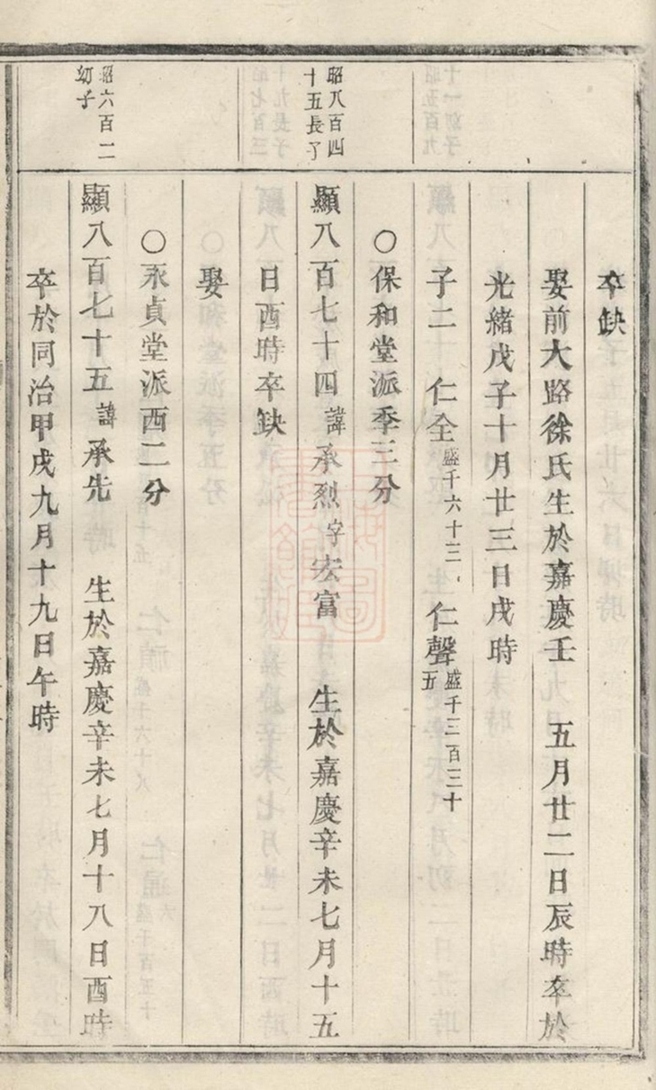 卒缺
娶前大路徐氏生於嘉慶壬 五月廿二日辰時卒於
光緒戊子十月廿三日戌時
子二 仁全盛千六十三 仁聲盛千三百三十五
〇保和堂派季三分
昭八百四十五長子
顯八百七十四諱承烈字宏富 生於嘉慶辛未七月十五
日酉時卒缺
娶
〇永貞堂派西二分
昭六百二幼子
顯八百七十五諱承先 生於嘉慶辛未七月十八日酉時
卒於同治甲戌九月十九日午時